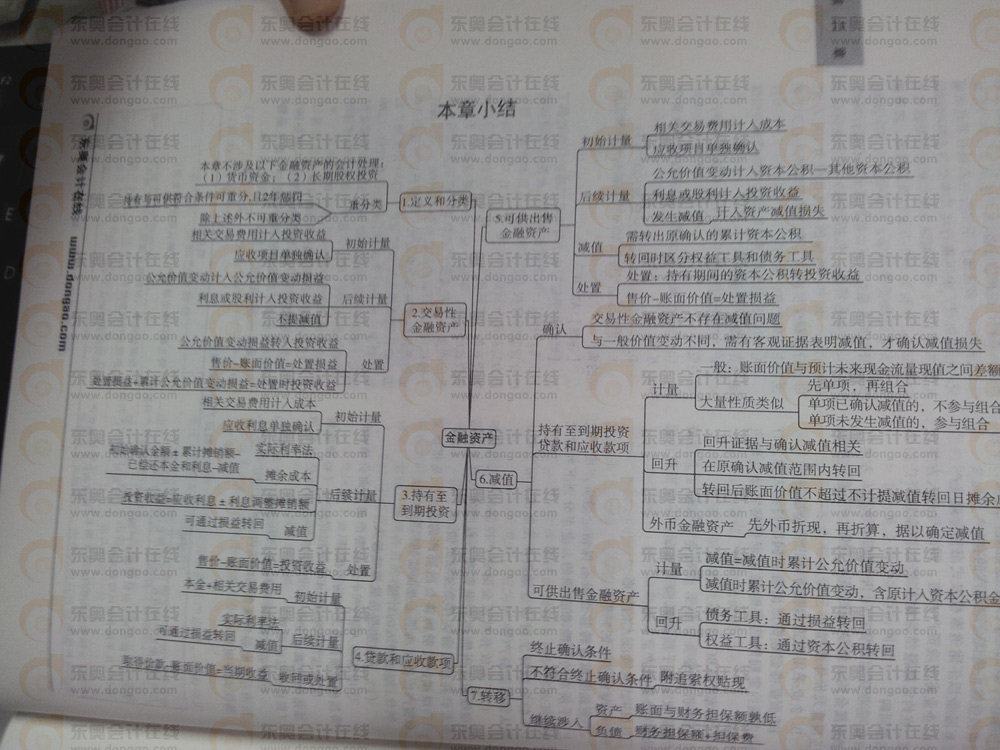 本章小结
东奥会计在线
www.dongao.com
金融资产
1.定义和分类
本章不涉及以下金融资产的会计处理：
（1）货币资金；（2）长期股权投资
重分类
持有与可供符合条件可重分,且2年惩罚
除上述外不可重分类
2.交易性
金融资产
初始计量
相关交易费用计入投资收益
应收项目单独确认
后续计量
公允价值变动计入公允价值变动损益
利息或股利计入投资收益
不提减值
处置
公允价值变动损益转入投资收益
售价–账面价值=处置损益
处置损益+累计公允价值变动损益=处置时投资收益
3.持有至
到期投资
初始计量
相关交易费用计人成本
应收利息单独确认
后续计量
实际利率法
摊余成本
初始确认金额±累计摊销额–
已偿还本金和利息–减值
投资收益=应收利息±利息调整摊销额
减值
可通过损益转回
处置
售价–账面价值=投资收益
4.贷款和应收款项
初始计量
本金+相关交易费用
后续计量
实际利率法
减值
可通过损益转回
收回或处置
取得价款–账面价值=当期收益
5.可供出售
金融资产
初始计量
相关交易费用计人成本
应收项目单独确认
后续计量
公允价值变动计入资本公积—其他资本公积
利息或股利计入投资收益
发生减值
计入资产减值损失
减值
需转出原确认的累计资本公积
转回时区分权益工具和债务工具
处置
处置：持有期间的资本公积转投资收益
售价–账面价值=处置损益
6.减值
确认
交易性金融资产不存在减值问题
与一般价值变动不同，需有客观证据表明减值，才确认减值损失
持有至到期投资
贷款和应收款项
计量
一般：账面价值与预计未来现金流量现值之间差额
大量性质类似
先单项，再组合
单项已确认减值的，不参与组合
单项未发生减值的，参与组合
回升
回升证据与确认减值相关
在原确认减值范围内转回
转回后账面价值不超过不计提减值转回日摊余
外币金融资产
先外币折现，再折算，据以确定减值
可供出售金融资产
计量
减值=减值时累计公允价值变动
减值时累计公允价值变动，含原计入资本公积金
回升
债务工具：通过损益转回
权益工具：通过资本公积转回
7.转移
终止确认条件
不符合终止确认条件
附追索权贴现
继续涉入
资产
账面与财务担保额孰低
负债
财务担保额+担保费